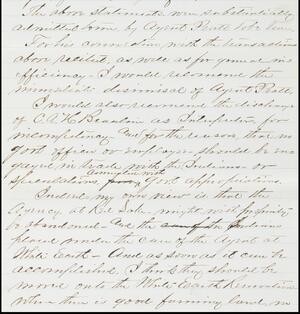 The above statements were substantially
admitted to me by Agent Pratt to be true.
For his connection with the transactions
above recited, as well as for general in
efficiency - I would recommend the
immediate dismissal of Agent Pratt.
I would also recommend the discharge
of C. A. H. Beaulieu as Interpreter for
incompetency and for the reason that no
govt officer or employee should be en
gaged in trade with the Indians - or
speculations connected with govt appropriations.
Indeed my own view is that the
Agency at Red Lake might with propriety
be abandoned - and the Indians
placed under the care of the Agent at
White Earth - And as soon as it can be
accomplished, I think they should be
moved onto the White Earth Reservation
where there is good farming land, in